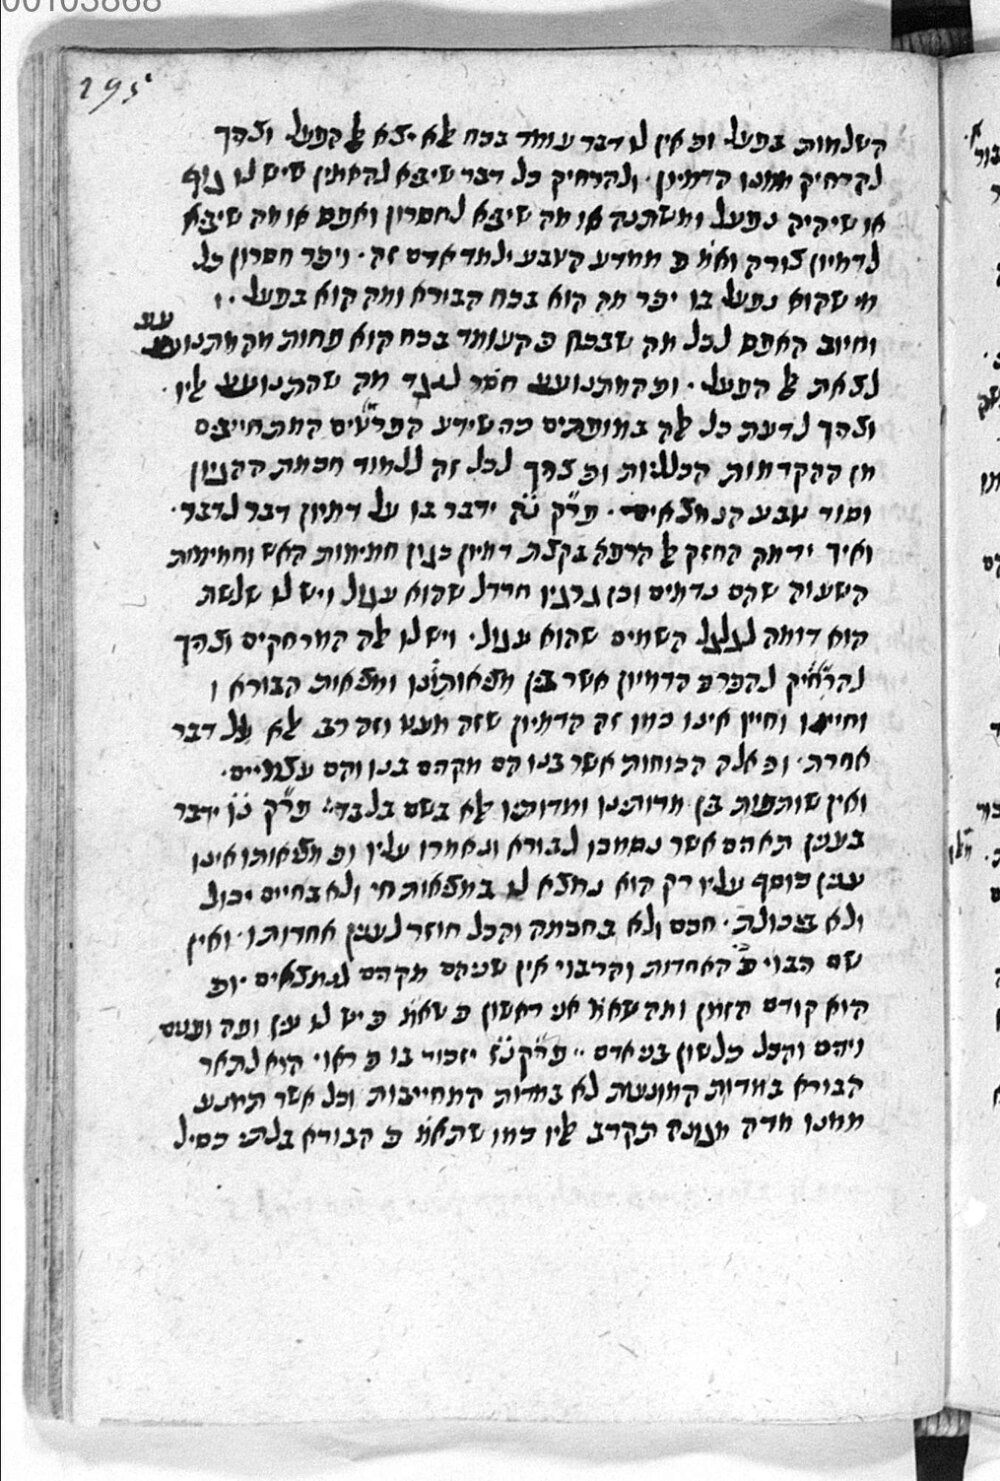 00103868
295
השלמות בפעל וכי אין לו דבר עומד בכח שלא יצא אל הפעל וצריך
להרחיק ממנו הדמיון. ולהרחיק כל דבר שיביא להאמין שיש לו גוף
או שיהיה נפעל ומשתנה או מה שיביא לחסרון ואפס או מה שיביא
לדמיון צורה ואמ' כי ממדע הטבע ילמד אדם זה. ויפר חסרון כל
מי שהוא נפעל בו יפר מה הוא בכח הבורא ומה הוא בפעל..
וחיוב האפס לכל מה שבכח כי העומד בכח הוא פחות מהמתנועע
לצאת אל הפעל. ומהמתנועע חסר לנגד מה שהתנועע אליו.
וצריך לדעת כל אלה במופתים כה שידע הפרטים המתחייבים
מן ההקדמות הכלליות וכי צריך לכל זה ללמוד חכמת ההגיון
וסוד טבע הנמצאים. פרק נו ידבר בו על דמיון דבר לדבר.
ואיך ידמה החזק אל הרפה בקצת דמיון כגון חמימות האש וחמימות
השעוה שהם נדמים וכן גרגיר חרדל שהוא עגול ויש לו שלשת
הוא דומה לגלגל השמים שהוא עגול. ויש לו אלה המרחקים וצריך
להרחיק להפריד הדמיון אשר בין מציאותינו ומציאות הבורא
וחיינו וחייו אינו כמו זה הדמיון שזה מעט וזה רב אלא על דבר
אחרת. וכי אלה הכוחות אשר בנו הם מקרים בנו והם עצמיים.
ואין שותפות בין מדותינו ומדותיו אלא בשם בלבד: פרק נז ידבר
בענין תארים אשר נסמכו לבורא ונאמרו עליו וכי מציאותו אינו
ענין נוסף עליו רק הוא נמצא לו במציאות חי ולא בחיים יכול
ולא ביכולת. חכם ולא בחכמה והכל חוזר לענין אחדותו. ואין
שם הבוי כי האחדות והרבוי אין שניהם מקרים לנמצאים וכי
הוא קודם הזמן ומה שאמ' אני ראשון כי שאמ' כי יש לו עין ופה ופנים
וידים והכל כלשון בני אדם: פרק נח יזכור בו כי ראוי הוא לתאר
הבורא במדות המונעות לא במדות המחייבות וכל אשר תמנע
ממנו מדה מגונה תקרב אליו כמו שתאמ' כי הבורא בלתי כסיל